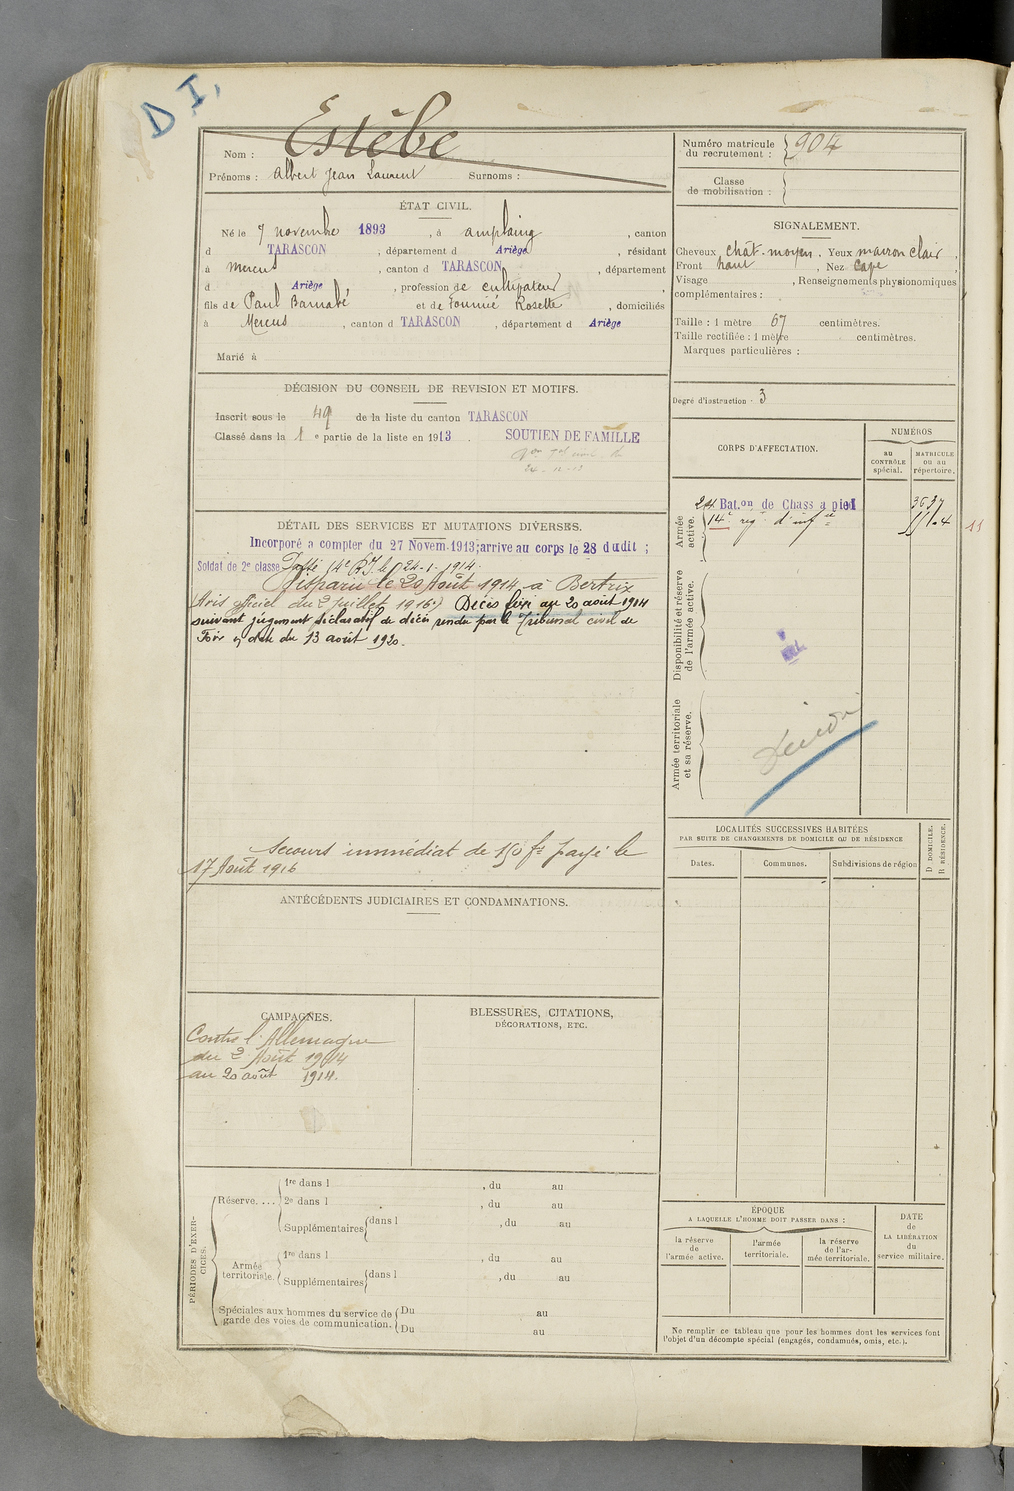 D I.
Nom : Estèbe
Prénoms : Albert Jean Laurent Surnoms :
ÉTAT CIVIL.
Né le 7 novembre 1893, à amplaing, canton
d TARASCON, département d Ariège, résidant
à Mercus, canton d TARASCON, département
d Ariège, profession de cultivateur,
fils de Paul Barnabé et de Fournié Rosette, domiciliés
à Mercus, canton d TARASCON, département d Ariège
Marié à
DÉCISION DU CONSEIL DE REVISION ET MOTIFS.
Inscrit sous le 49 de la liste du canton TARASCON
Classé dans la 1e partie de la liste en 1913. SOUTIEN DE FAMILLE
DÉTAIL DES SERVICES ET MUTATIONS DIVERSES.
Incorporé a compter du 27 Novem. 1913; arrive au corps le 28 dudit ;
Soldat de 2e classe Passé 14e R.I. le 24-1-1914.
Disparu le 20 Août 1914, à Bertrix
(Avis officiel du 2 juillet 1916.) Décès fixé au 20 août 1914
suivant jugement déclaratif de décès rendu par le Tribunal civil de
Foix en date du 13 août 1920.
Secours immédiat de 150 fs payé le
17 Août 1916
ANTÉCÉDENTS JUDICIAIRES ET CONDAMNATIONS.
CAMPAGNES.
Contre l'Allemagne
du 2 Août 1914
au 20 août 1914.
BLESSURES, CITATIONS,
DÉCORATIONS, ETC.
PÉRIODES D'EXER-
CICES.
Réserve....
1re dans l , du au
2e dans l , du au
Supplémentaires dans l , du au
Armée
territoriale.
1re dans l , du au
Supplémentaires dans l , du au
Spéciales aux hommes du service de
garde des voies de communication.
Du au
Du au
Numéro matricule
du recrutement : 904
Classe
de mobilisation :
SIGNALEMENT.
Cheveux chât-moyen. Yeux marron clair,
Front haut, Nez cave
Visage , Renseignements physionomiques
complémentaires :
Taille : 1 mètre 67 centimètres.
Taille rectifiée : 1 mètre centimètres.
Marques particulières :
Degré d'instruction : 3
CORPS D'AFFECTATION.
NUMÉROS
au
CONTRÔLE
spécial.
MATRICULE
ou au
répertoire.
Armée
active.
24 Bat.on de Chass a pied 3637
14e reg.t d'infie 11
Disponibilité et réserve
de l'armée active.
Armée territoriale
et sa réserve.
LOCALITÉS SUCCESSIVES HABITÉES
PAR SUITE DE CHANGEMENTS DE DOMICILE OU DE RÉSIDENCE
Dates.
Communes.
Subdivisions de région
D DOMICILE.
R RÉSIDENCE.
ÉPOQUE
A LAQUELLE L'HOMME DOIT PASSER DANS :
la réserve
de
l'armée active.
l'armée
territoriale.
la réserve
de l'ar-
mée territoriale.
DATE
de
LA LIBÉRATION
du
service militaire.
Ne remplir ce tableau que pour les hommes dont les services font
l'objet d'un décompte spécial (engagés, condamnés, omis, etc.).